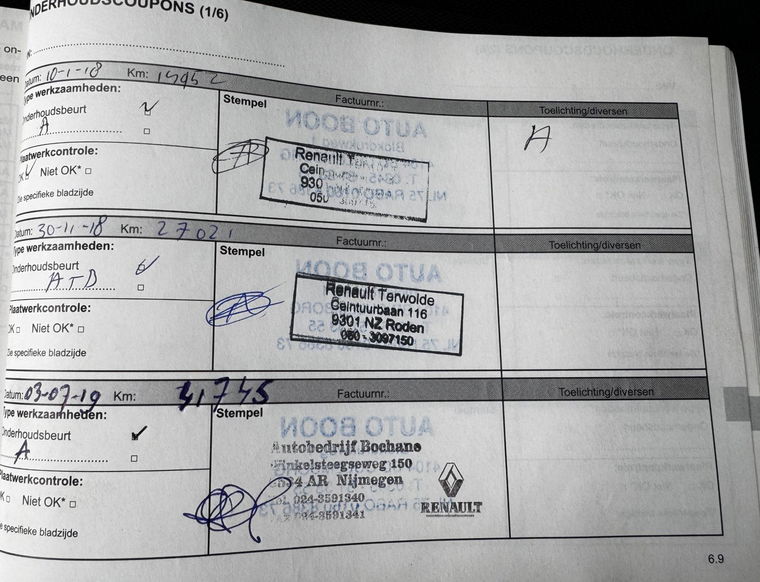 NDERHOUDSCOUPONS (1/6)
on-
N:
een
Datum: 10-1-18 Km:
Type werkzaamheden:
Onderhoudsbeurt
A
Plaatwerkcontrole:
OK Niet OK*
Zie specifieke bladzijde
Stempel Factuurnr.:
AUTO BOON
Renault T
Cein
930
050
Toelichting/diversen
A
Datum: 30-11-18 Km: 27021
Type werkzaamheden:
Onderhoudsbeurt
ATD
Plaatwerkcontrole:
OK Niet OK*
Zie specifieke bladzijde
Stempel Factuurnr.:
AUTO BOON
Renault Terwolde
Ceintuurbaan 116
9301 NZ Roden
050 - 3097150
Toelichting/diversen
Datum: 03-07-19 Km: 31,745
Type werkzaamheden:
Onderhoudsbeurt
A
Plaatwerkcontrole:
OK Niet OK*
Zie specifieke bladzijde
Stempel Factuurnr.:
AUTO BOON
Autobedrijf Bochane
Winkelsteegseweg 150
6534 AR Nijmegen
Tel. 024-3591340
024-3591341
RENAULT
Toelichting/diversen
6.9